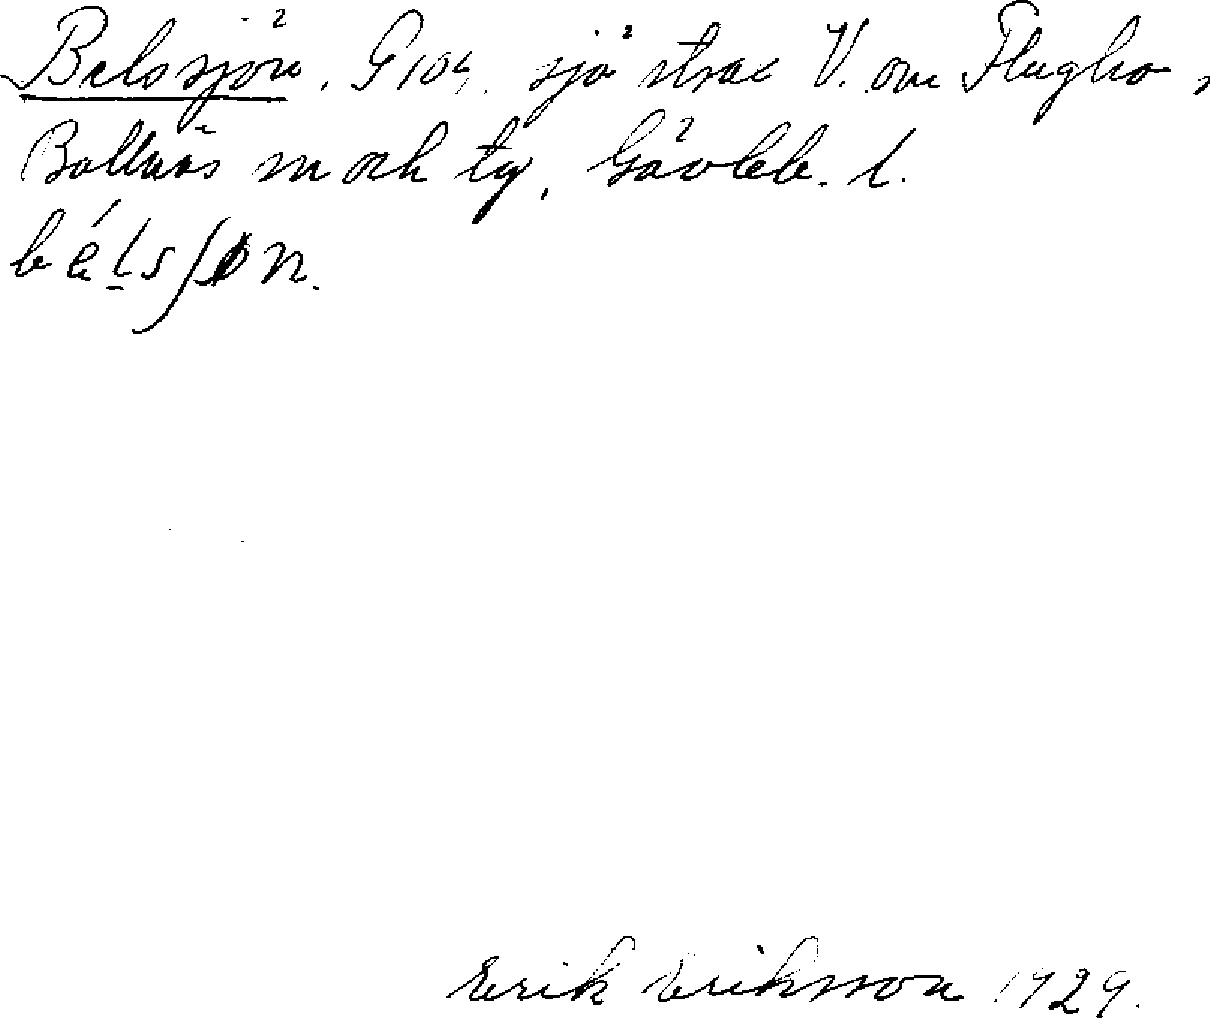 Belssjön. G 104. sjö strax V. om Flugbo,
Bollnäs sn och tg, Gävleb. l.
béls ʃøn.
Erik Eriksson 1929.